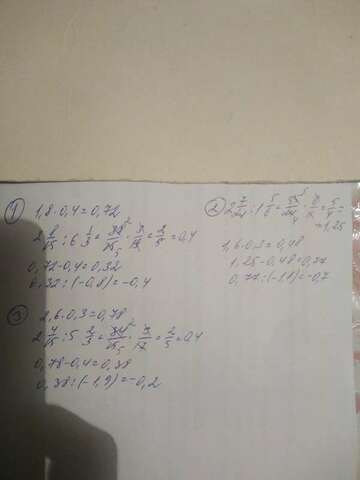 1) 1,8·0,4=0,72
2 8/15 : 6 1/3 = 38/15 · 3/19 = 2/5 = 0,4
0,72-0,4=0,32
0,32:(-0,8)=-0,4
2) 2 7/24 : 1 5/6 = 55/24 · 6/11 = 5/4 =
=1,25
1,6·0,3=0,48
1,25-0,48=0,77
0,77:(-1,1)=-0,7
3) 2,6·0,3=0,78
2 4/15 : 5 2/3 = 34/15 · 3/17 = 2/5 = 0,4
0,78-0,4=0,38
0,38:(-1,9)=-0,2